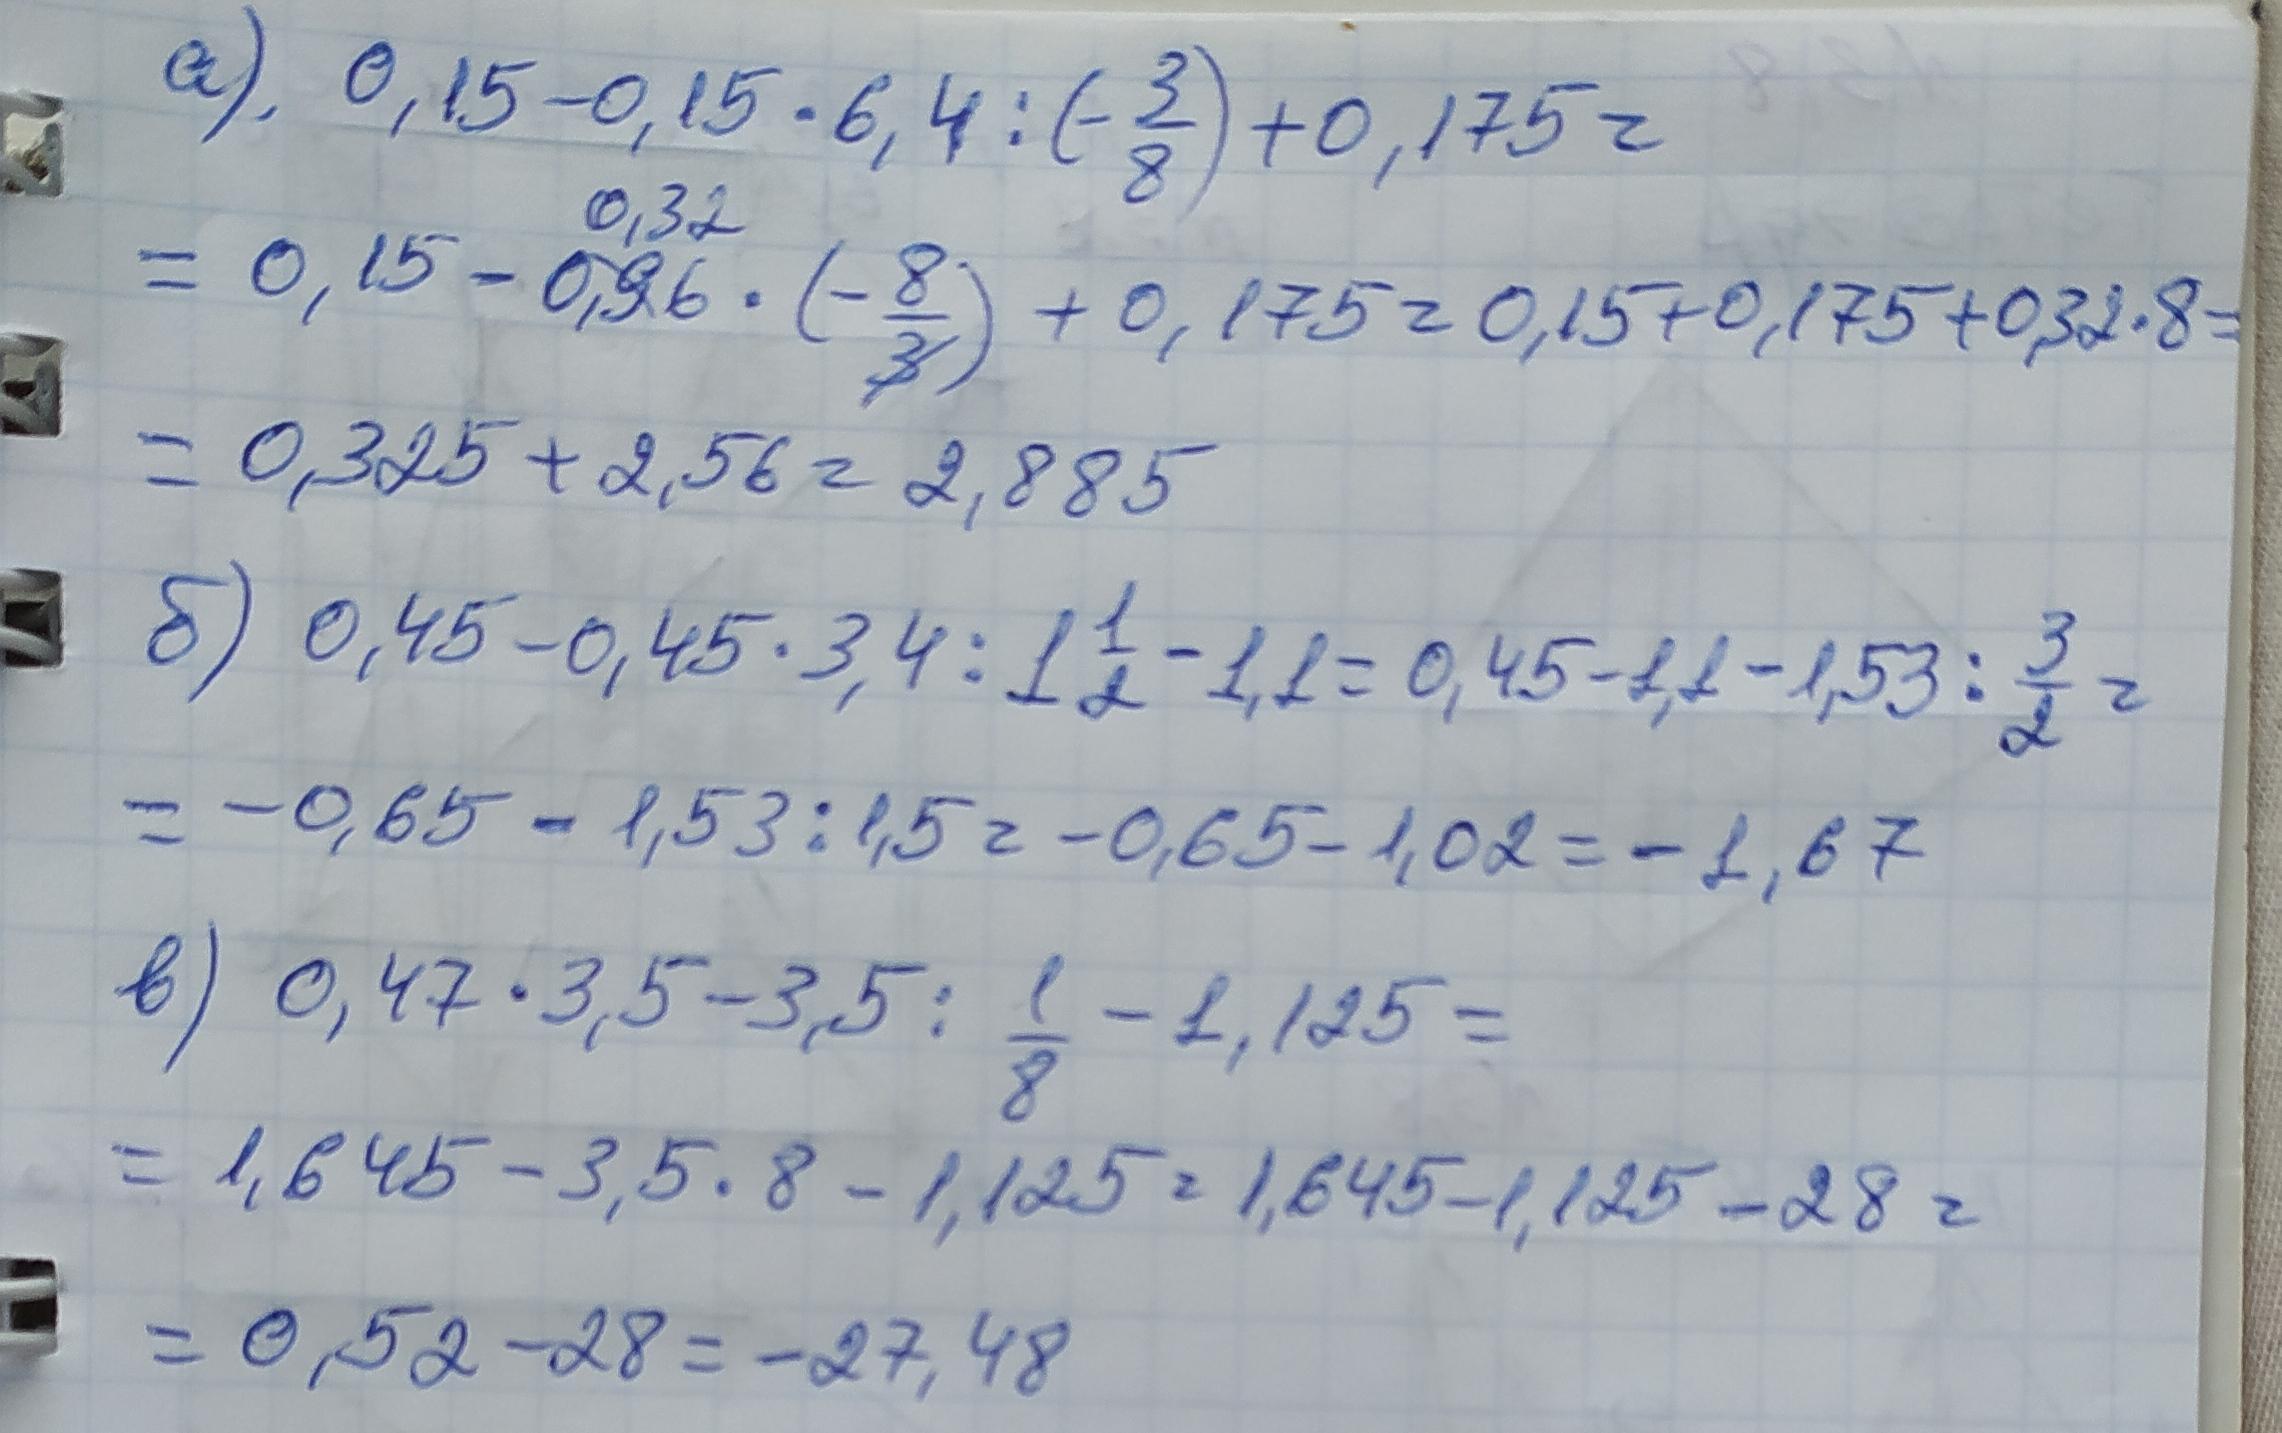 а). 0,15-0,15·6,4:(-3/8)+0,175=
0,32
=0,15-0,96·(-8/3)+0,175=0,15+0,175+0,32·8=
=0,325+2,56=2,885
б) 0,45-0,45·3,4:1 1/2-1,1=0,45-1,1-1,53:3/2=
=-0,65-1,53:1,5=-0,65-1,02=-1,67
в) 0,47·3,5-3,5:1/8-1,125=
=1,645-3,5·8-1,125=1,645-1,125-28=
=0,52-28=-27,48